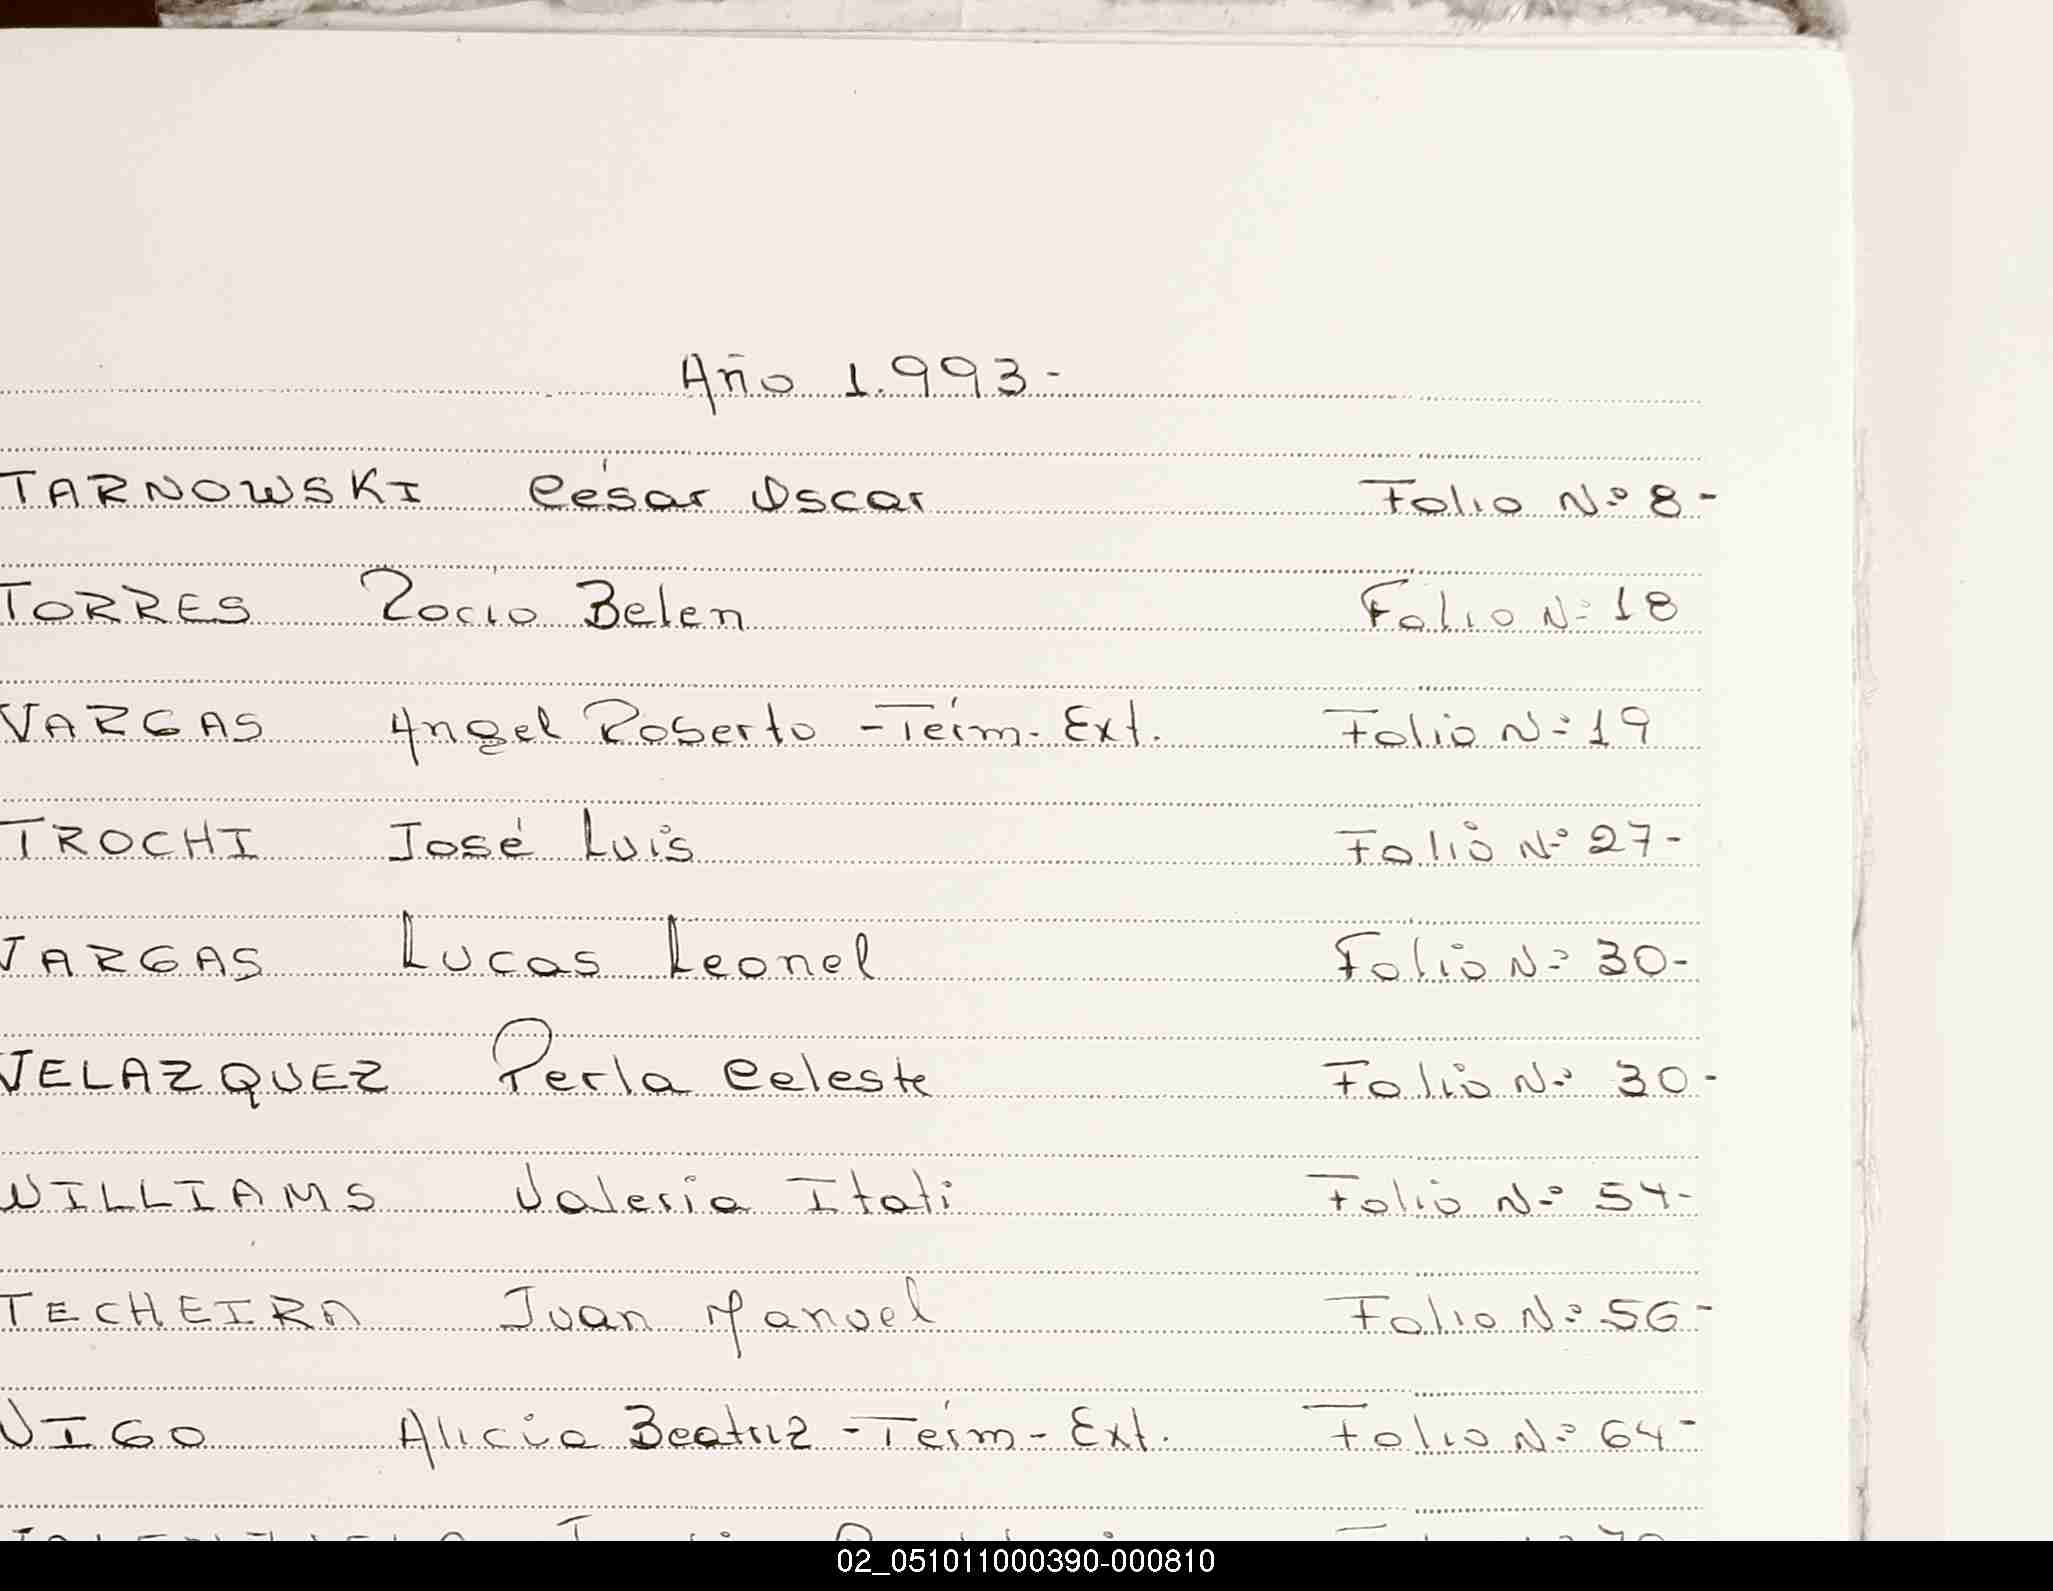 Año 1.993-
TARNOWSKI César Oscar Folio Nº 8-
TORRES Rocio Belen Folio Nº 18
VARGAS Angel Roberto - Térm. Ext. Folio Nº 19
TROCHI José Luis Folio Nº 27-
VARGAS Lucas Leonel Folio Nº 30-
VELAZQUEZ Perla Celeste Folio Nº 30-
WILLIAMS Valeria Itati Folio Nº 54-
TECHEIRA Juan Manuel Folio Nº 56-
VIGO Alicia Beatriz - Térm - Ext. Folio Nº 64-
02_051011000390-000810